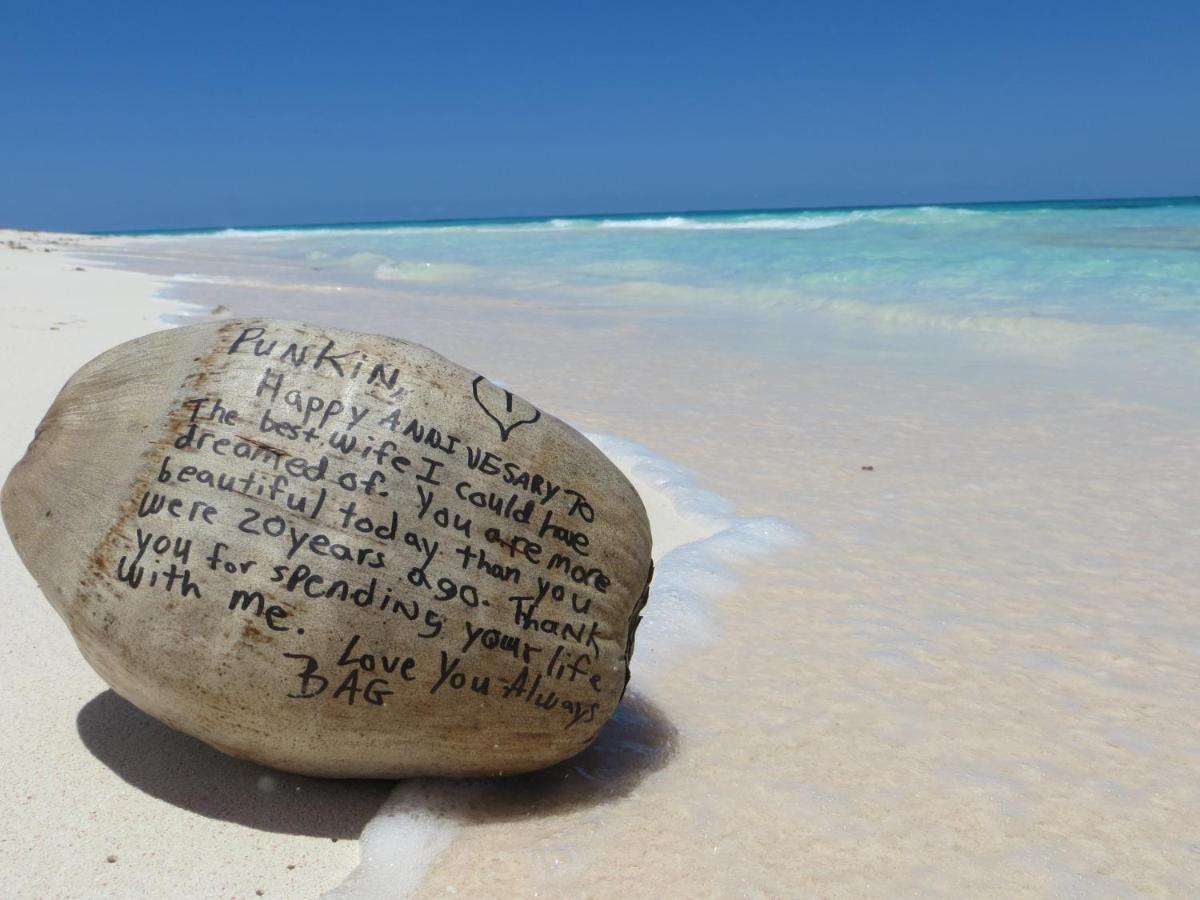 PUNKiN,
Happy ANNIVESARY TO
The best wife I could have
dreamed of. You are more
beautiful today than you
were 20 years ago. Thank
you for spending your life
with me.
Love You Always
BAG